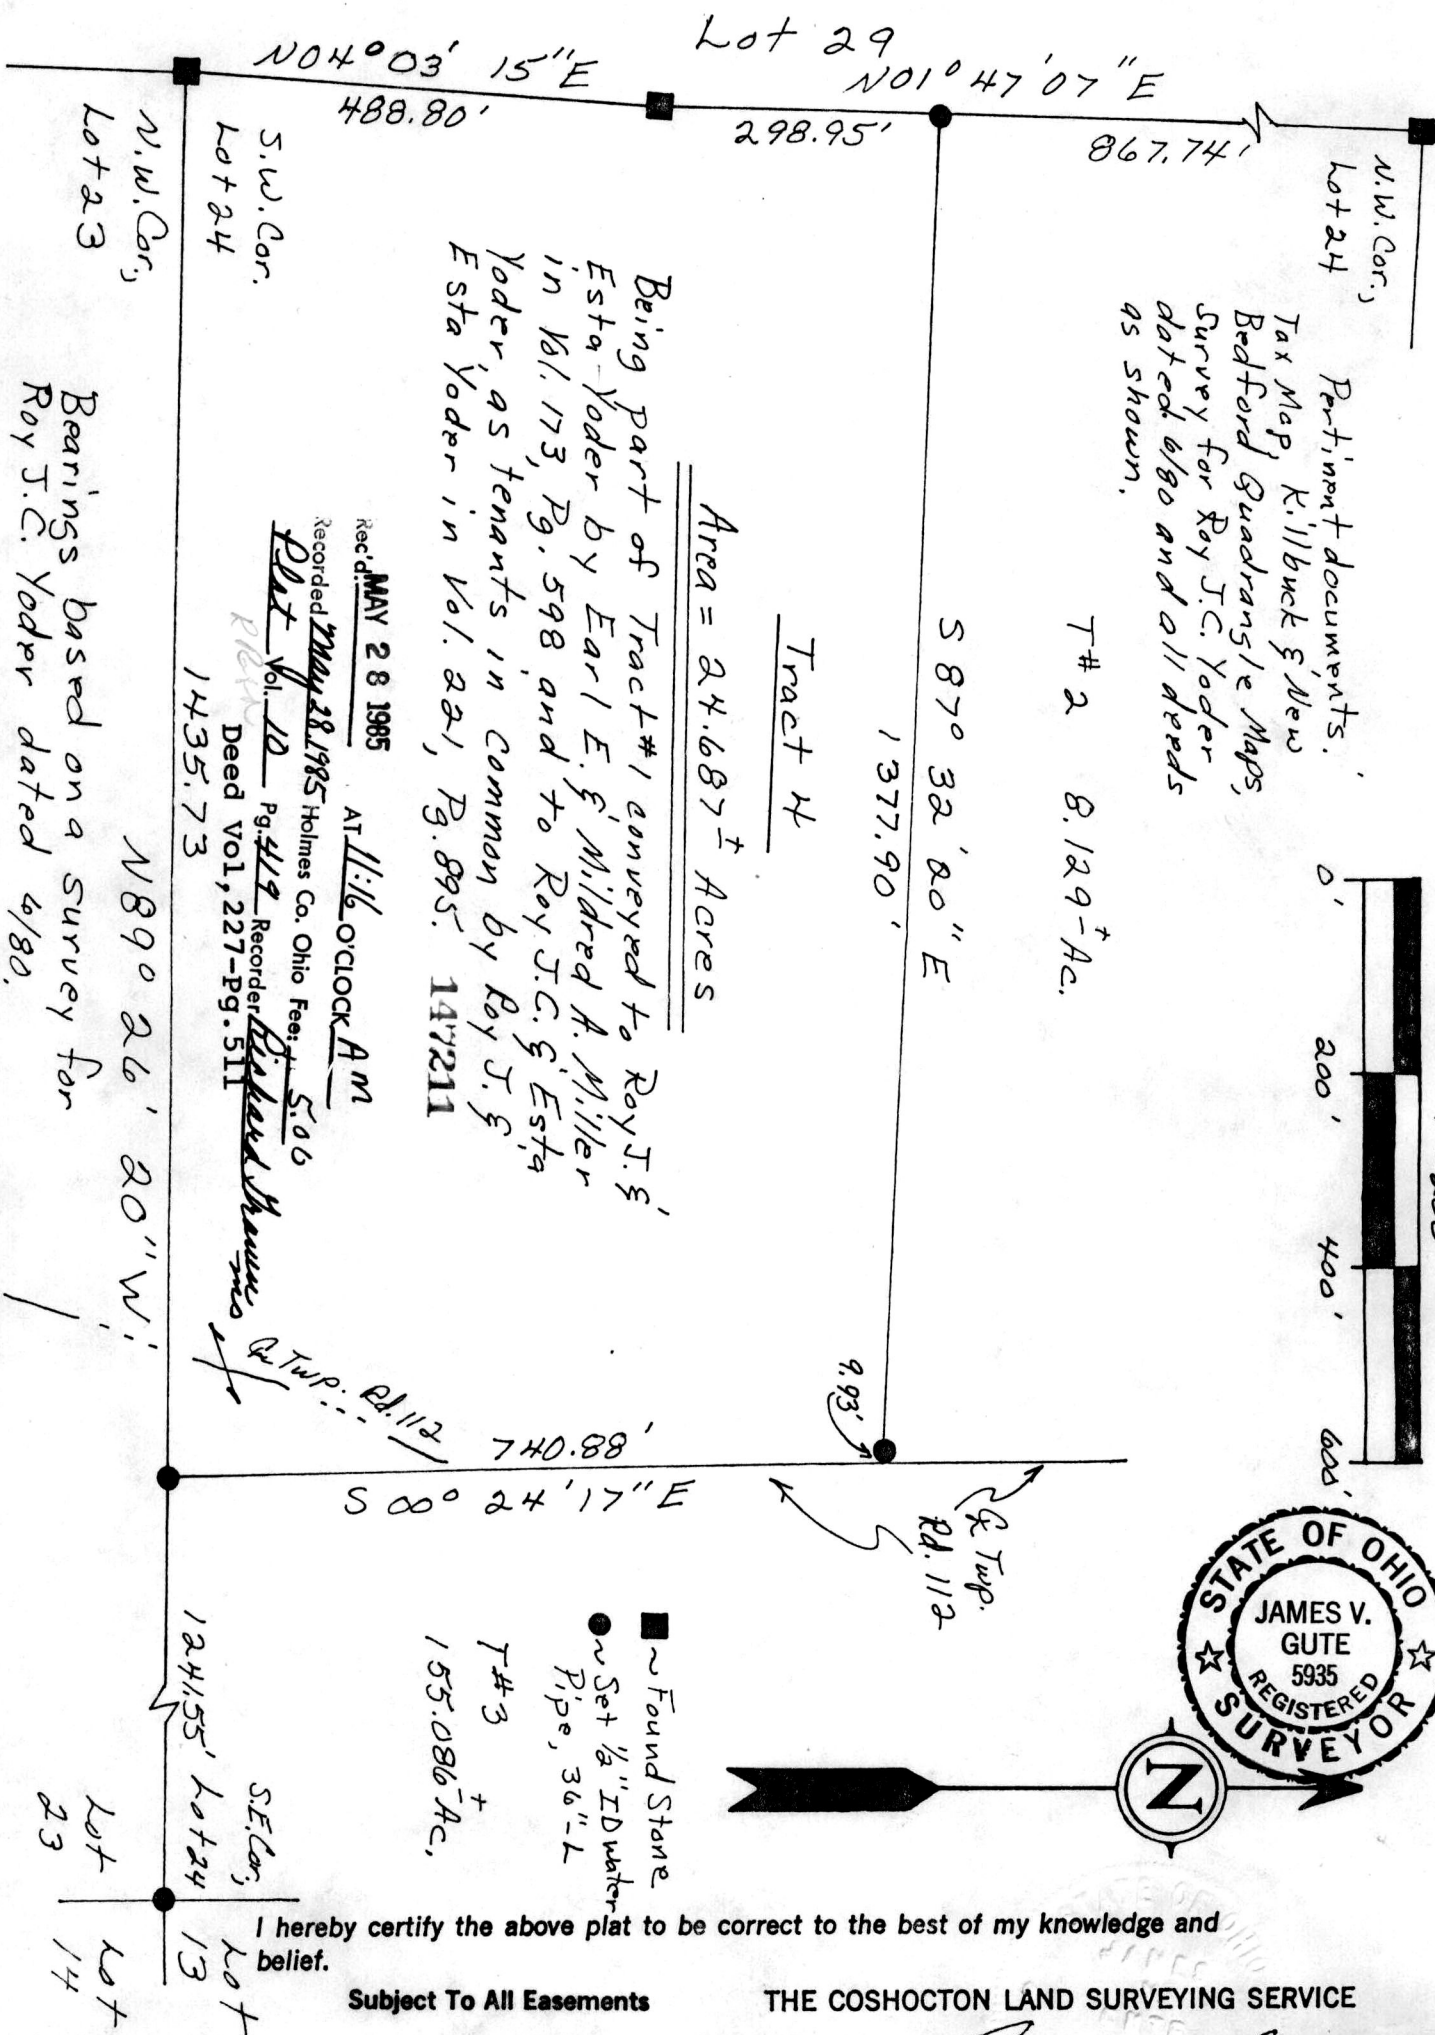 Lot 29
N04° 03' 15" E
488.80'
N01° 47' 07" E
298.95'
867.74'
N.W. Cor.,
Lot 24
Pertinent documents:
Tax Map, Killbuck & New
Bedford Quadrangle Maps,
Survey for Roy J.C. Yoder
dated 6/80 and all deeds
as shown.
T#2 8.129± Ac.
S 87° 32' 20" E
1377.90'
Tract 4
Area = 24.687± Acres
Being part of Tract #1 conveyed to Roy J. &
Esta Yoder by Earl E. & Mildred A. Miller
in Vol. 173, Pg. 598 and to Roy J.C. & Esta
Yoder, as tenants in Common by Roy J. &
Esta Yoder in Vol. 221, Pg. 895.
147211
Rec'd. MAY 28 1985 AT 11:16 O'CLOCK A M
Recorded May 28, 1985 Holmes Co. Ohio Fee: 5.06
Plat Vol. 10 Pg. 419 Recorder Richard
Deed Vol, 227-Pg. 511
S.W. Cor.
Lot 24
N.W. Cor.,
Lot 23
1435.73
N89° 26' 20" W
Bearings based on a survey for
Roy J.C. Yoder dated 6/80.
0' 200' 400' 600'
9.93'
℄ Twp.
Rd. 112
℄ Twp. Rd. 112
740.88'
S 00° 24' 17" E
■ ~ Found Stone
● ~ Set ½" ID water
Pipe, 36"-L
T#3
155.086± Ac.
1241.55'
S.E. Cor,
Lot 24
Lot
23
Lot
13
Lot
14
STATE OF OHIO
JAMES V.
GUTE
5935
REGISTERED
SURVEYOR
N
I hereby certify the above plat to be correct to the best of my knowledge and
belief.
Subject To All Easements
THE COSHOCTON LAND SURVEYING SERVICE